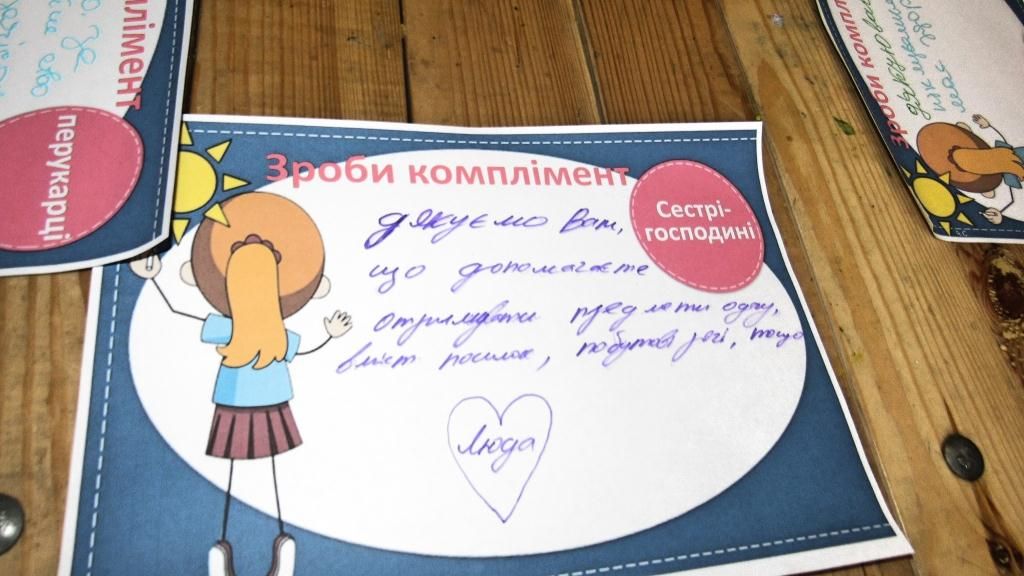 Зроби комплімент
Сестрі-
господині
Дякуємо Вам,
що допомагаєте
отримувати предмети одягу,
вміст посилок, побутові речі, тощо
Люда
перукарці
лімент
Зроби компл